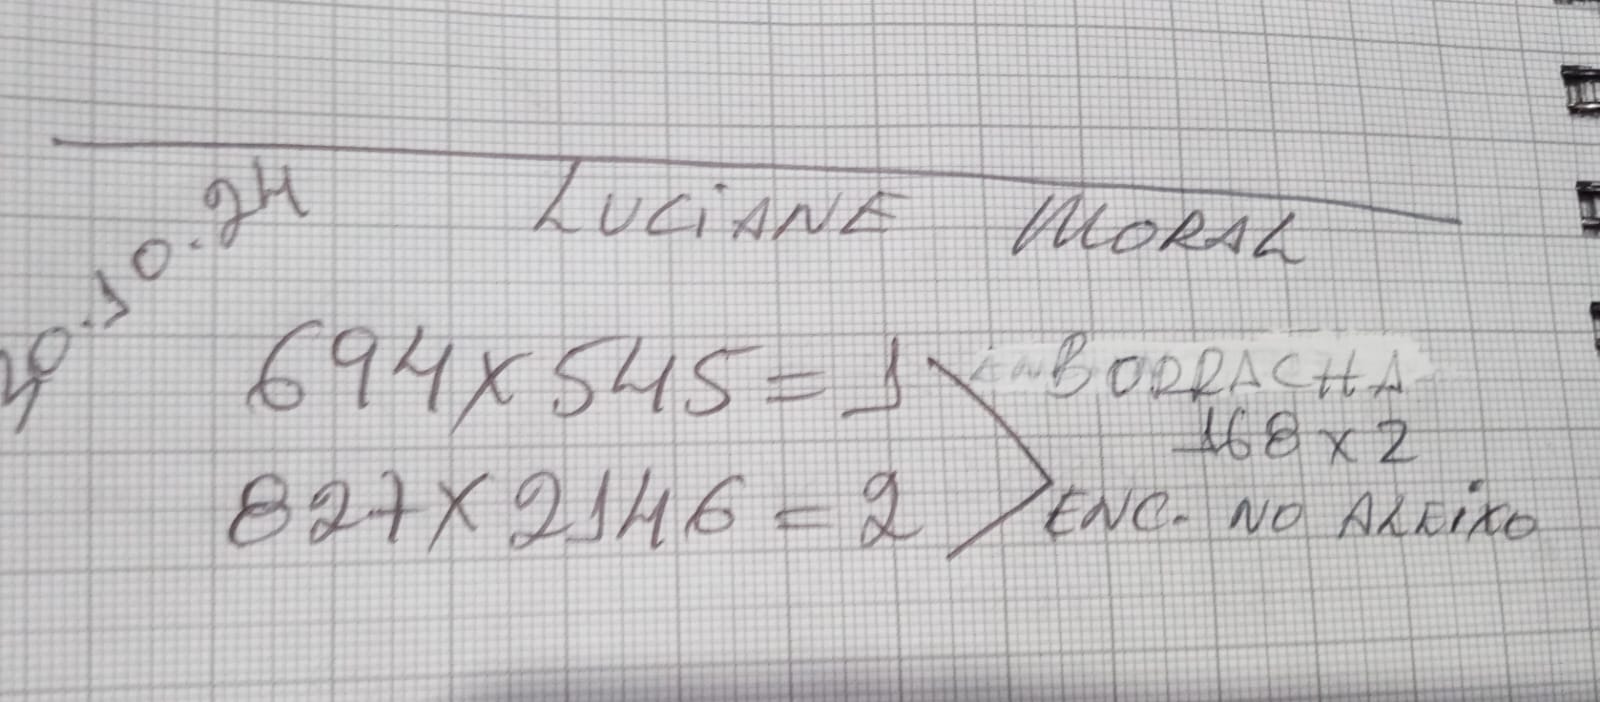 20.10.24
LUCIANE MORAL
694x545=1 BORRACHA
168x2
827x2146=2 ENC. NO ALEIXO